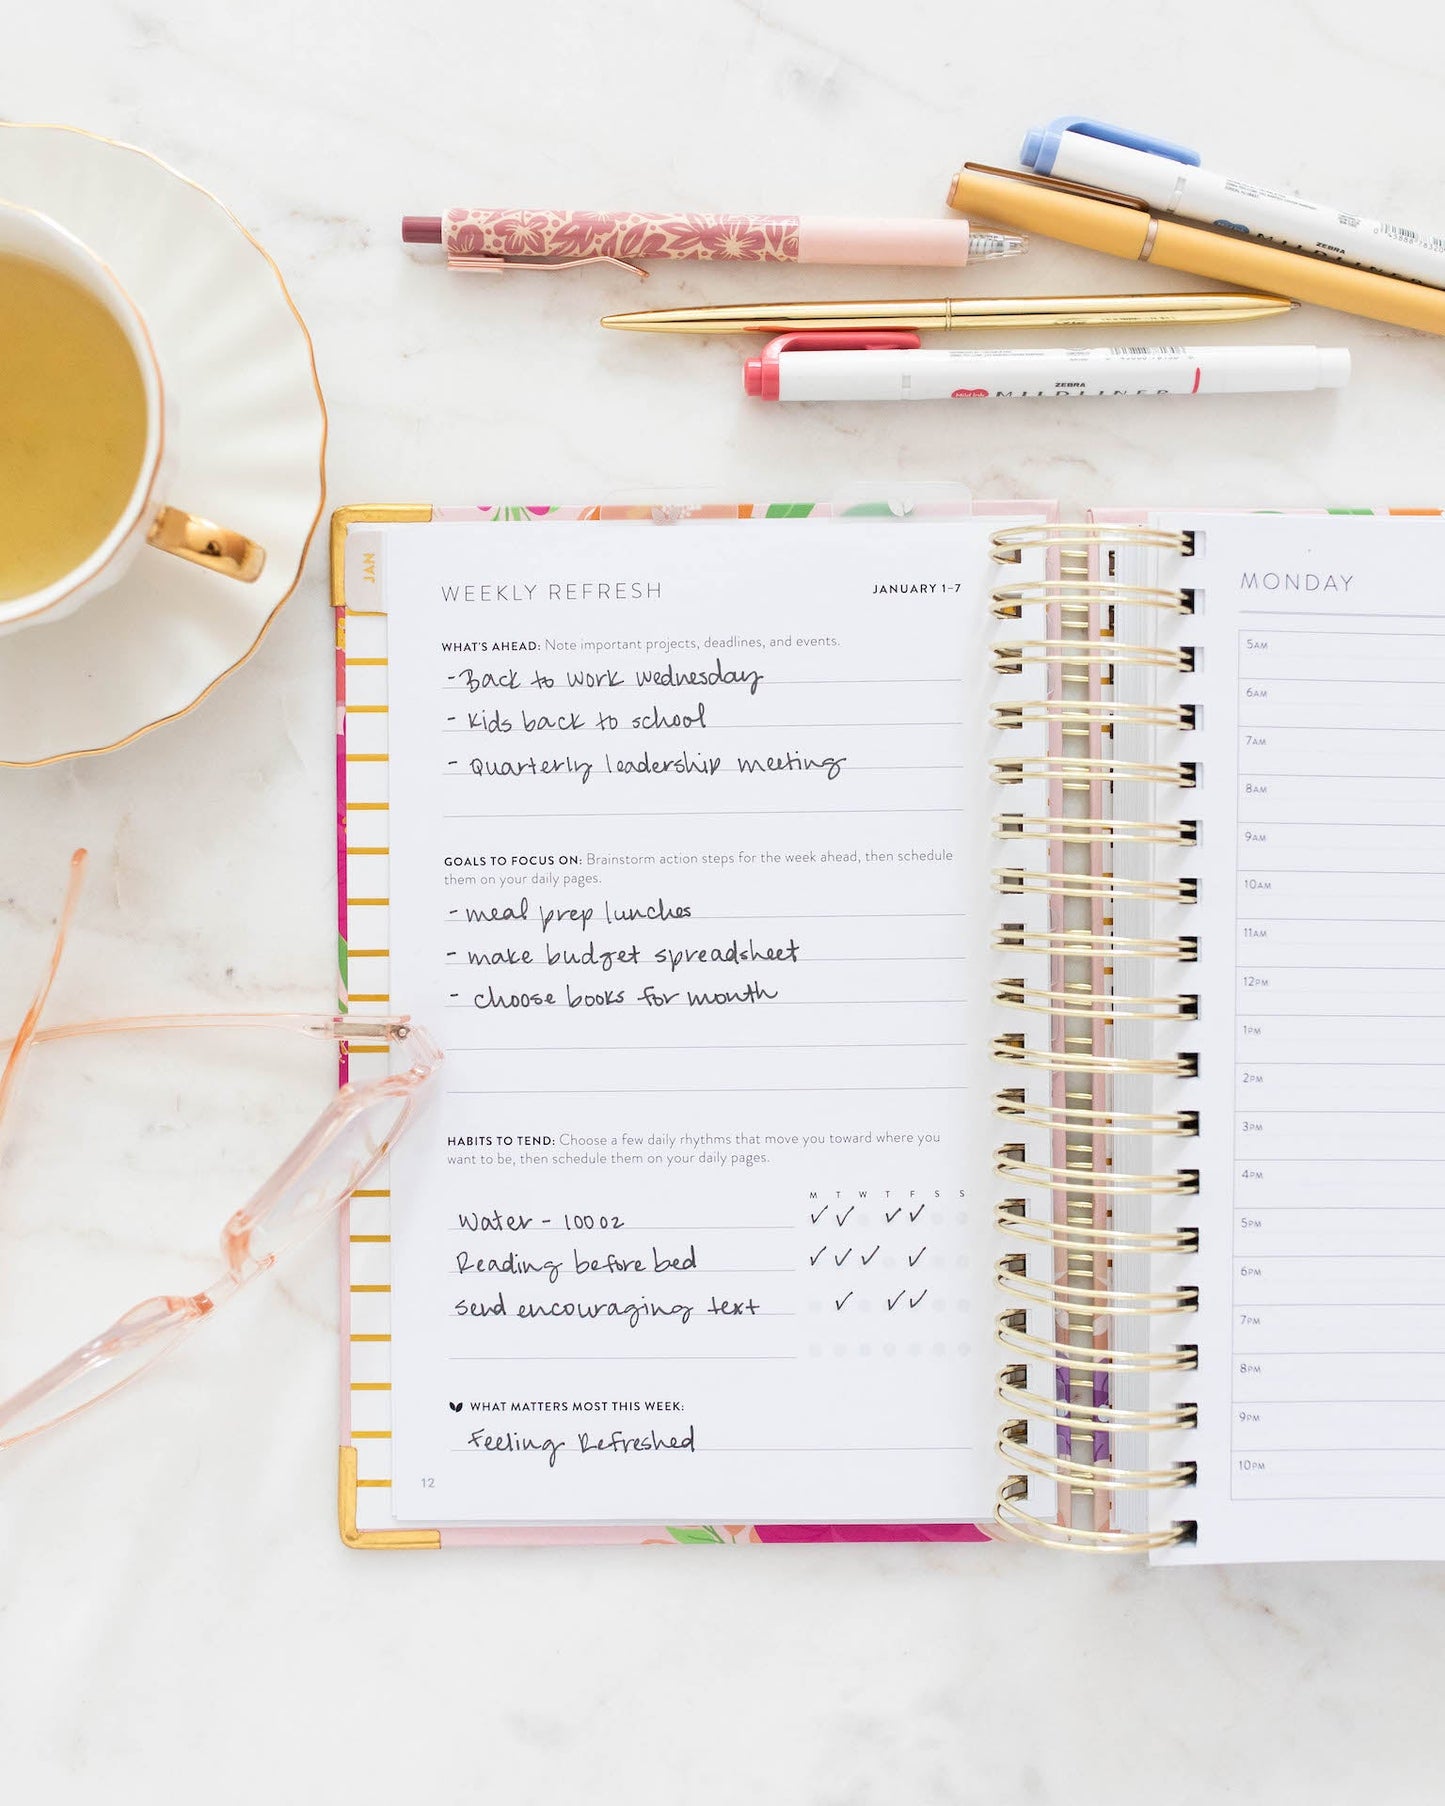 ZEBRA
ZEBRA
Mild Ink
MILDLINER
JAN
WEEKLY REFRESH
JANUARY 1-7
WHAT'S AHEAD: Note important projects, deadlines, and events.
- Back to work Wednesday
- Kids back to school
- Quarterly leadership meeting
GOALS TO FOCUS ON: Brainstorm action steps for the week ahead, then schedule
them on your daily pages.
- meal prep lunches
- make budget spreadsheet
- choose books for month
HABITS TO TEND: Choose a few daily rhythms that move you toward where you
want to be, then schedule them on your daily pages.
M T W T F S S
Water - 100 oz ✓ ✓ ✓ ✓
Reading before bed ✓ ✓ ✓ ✓
send encouraging text ✓ ✓ ✓
WHAT MATTERS MOST THIS WEEK:
Feeling Refreshed
12
MONDAY
5AM
6AM
7AM
8AM
9AM
10AM
11AM
12PM
1PM
2PM
3PM
4PM
5PM
6PM
7PM
8PM
9PM
10PM